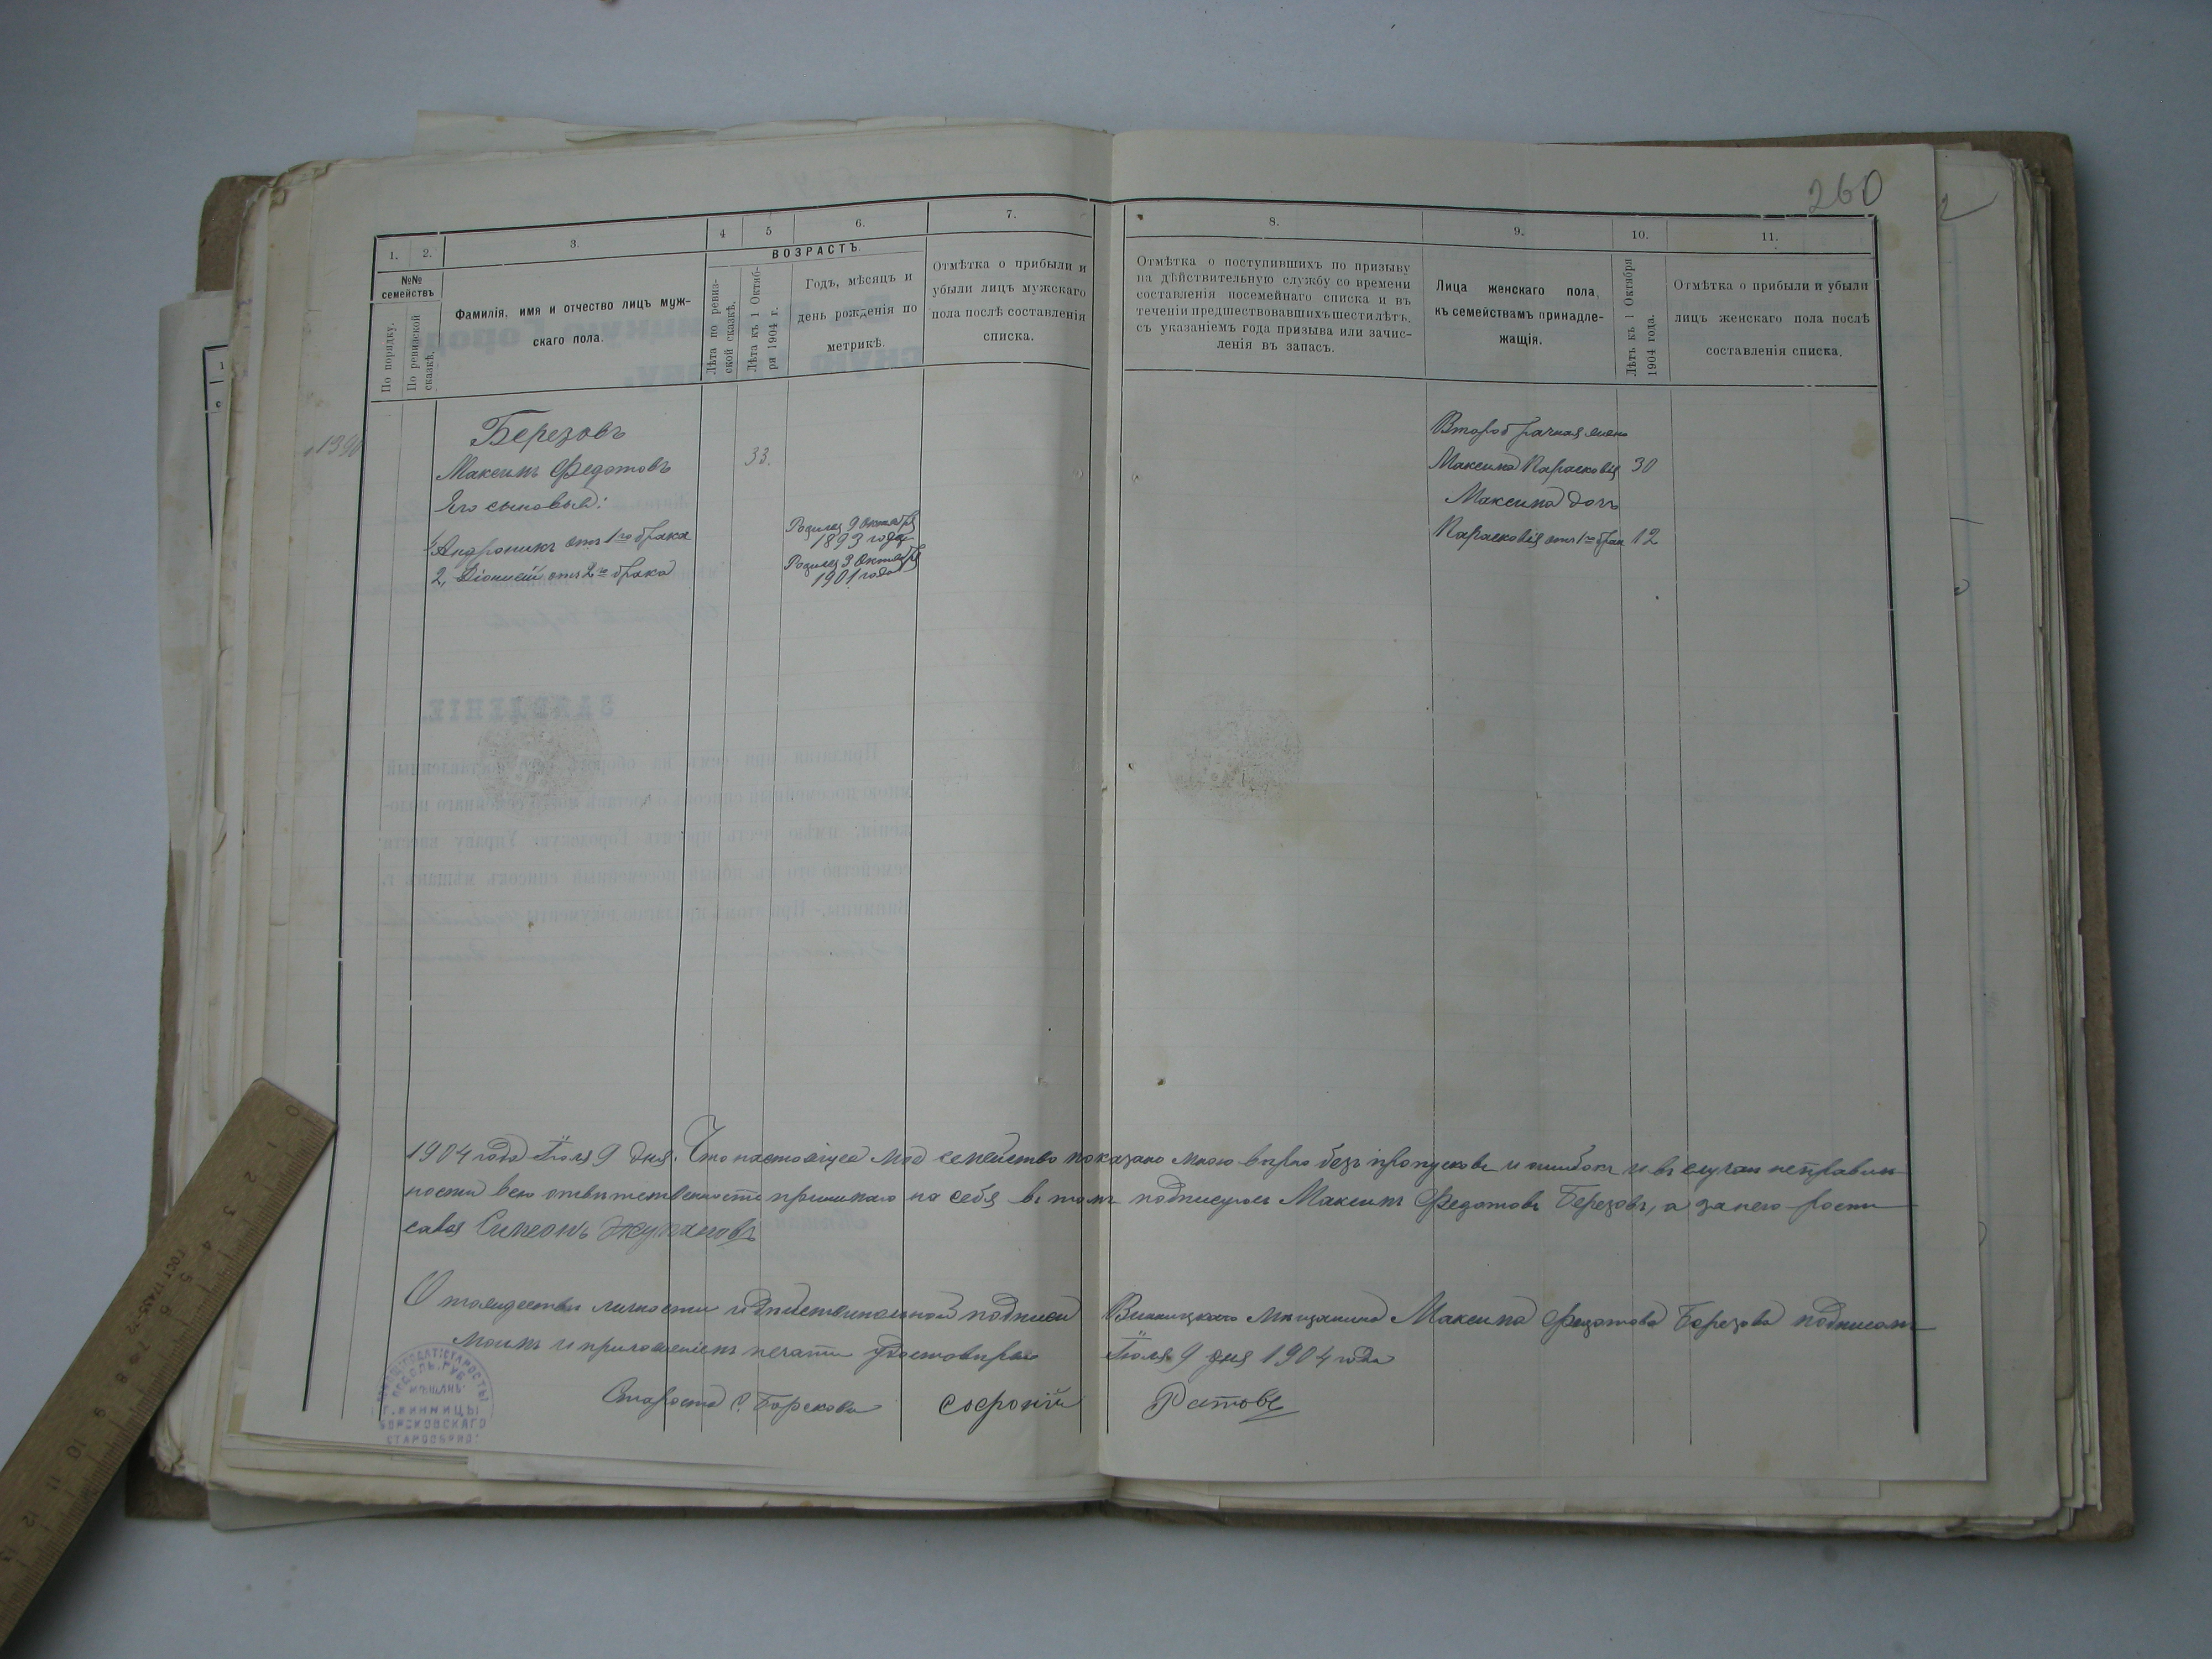 260
1. 2. 3. 4 5 6. 7. 8. 9. 10. 11.
№№ семействъ
По порядку.
По ревизской сказкѣ.
Фамилія, имя и отчество лицъ муж-
скаго пола.
ВОЗРАСТЪ.
Лѣта по ревиз-
ской сказкѣ.
Лѣта къ 1 Октяб-
ря 1904 г.
Годъ, мѣсяцъ и
день рожденія по
метрикѣ.
Отмѣтка о прибыли и
убыли лицъ мужскаго
пола послѣ составленія
списка.
Отмѣтка о поступившихъ по призыву
на дѣйствительную службу со времени
составленія посемейнаго списка и въ
теченіи предшествовавшихъ шести лѣтъ,
съ указаніемъ года призыва или зачис-
ленія въ запасъ.
Лица женскаго пола,
къ семействамъ принадле-
жащія.
Лѣтъ къ 1 Октября
1904 года.
Отмѣтка о прибыли и убыли
лицъ женскаго пола послѣ
составленія списка.
Березовъ
Максимъ Федотовъ 33.
Его сыновья:
1, Андроникъ отъ 1го брака
Родился 9 Октября
1893 года
2, Діонисій отъ 2го брака
Родился 3 Октября
1901 года
Второбрачная жена
Максима Парасковія 30
Максима дочь
Парасковія отъ 1го брак 12
1904 года Іюля 9 дня. Что настоящее мое семейство показано мною вѣрно безъ пропусковъ и ошибокъ и въ случаи неправиль
ности всю отвѣтственность принимаю на себя въ томъ подписуюсь Максимъ Федотовъ Березовъ, а за него роспи
сався Симеонъ
О тождествѣ личности и дѣйствительной подписи Винницкаго мѣщанина Максима Федотова Березова подписомъ
моимъ и приложеніемъ печати удостовѣряю Іюля 9 дня 1904 года
Староста с. Борскова Софроній
ПОДОЛЬ. ГУБ.
МѢЩАНЪ
Г. ВИННИЦЫ
БОРСКОВСКАГО
СТАРООБРЯД.
ЗАЯВЛЕНІЕ.
0 1 2 3 4 5 6 7 8 9 10 11 12 13